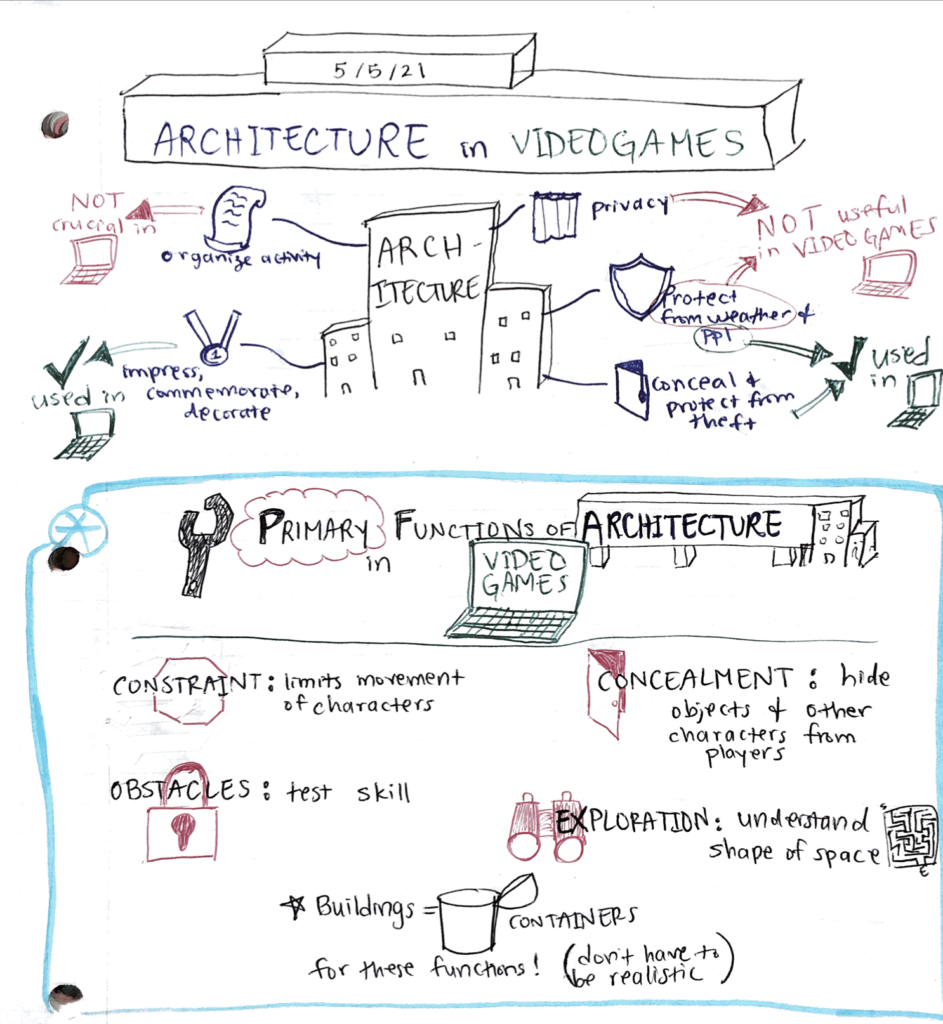 5/5/21
ARCHITECTURE in VIDEOGAMES
NOT
crucial in
organize activity
ARCH-
ITECTURE
privacy
NOT useful
in VIDEO GAMES
Protect
from weather &
ppl
used in
1
impress,
commemorate,
decorate
conceal &
protect from
theft
used
in
PRIMARY FUNCTIONS OF ARCHITECTURE
in
VIDEO
GAMES
CONSTRAINT: limits movement
of characters
CONCEALMENT: hide
objects & other
characters from
players
OBSTACLES: test skill
EXPLORATION: understand
shape of space
S
E
Buildings =
CONTAINERS
for these functions! (don't have to
be realistic)